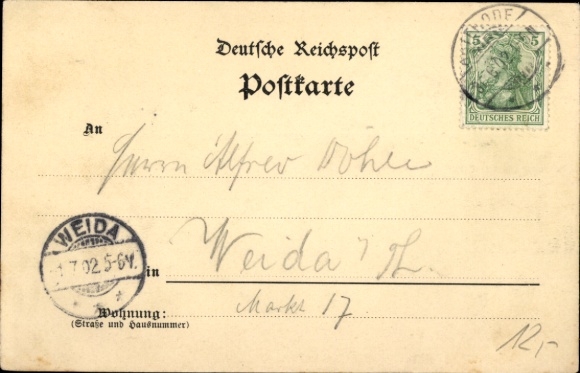 Deutsche Reichspost
Postkarte
5 5
DEUTSCHES REICH
An
Herrn Alfred Döhler
WEIDA
1.7.02 5-6V.
in
Weida i/Th.
Markt 17
Wohnung:
(Straße und Hausnummer)
12,-